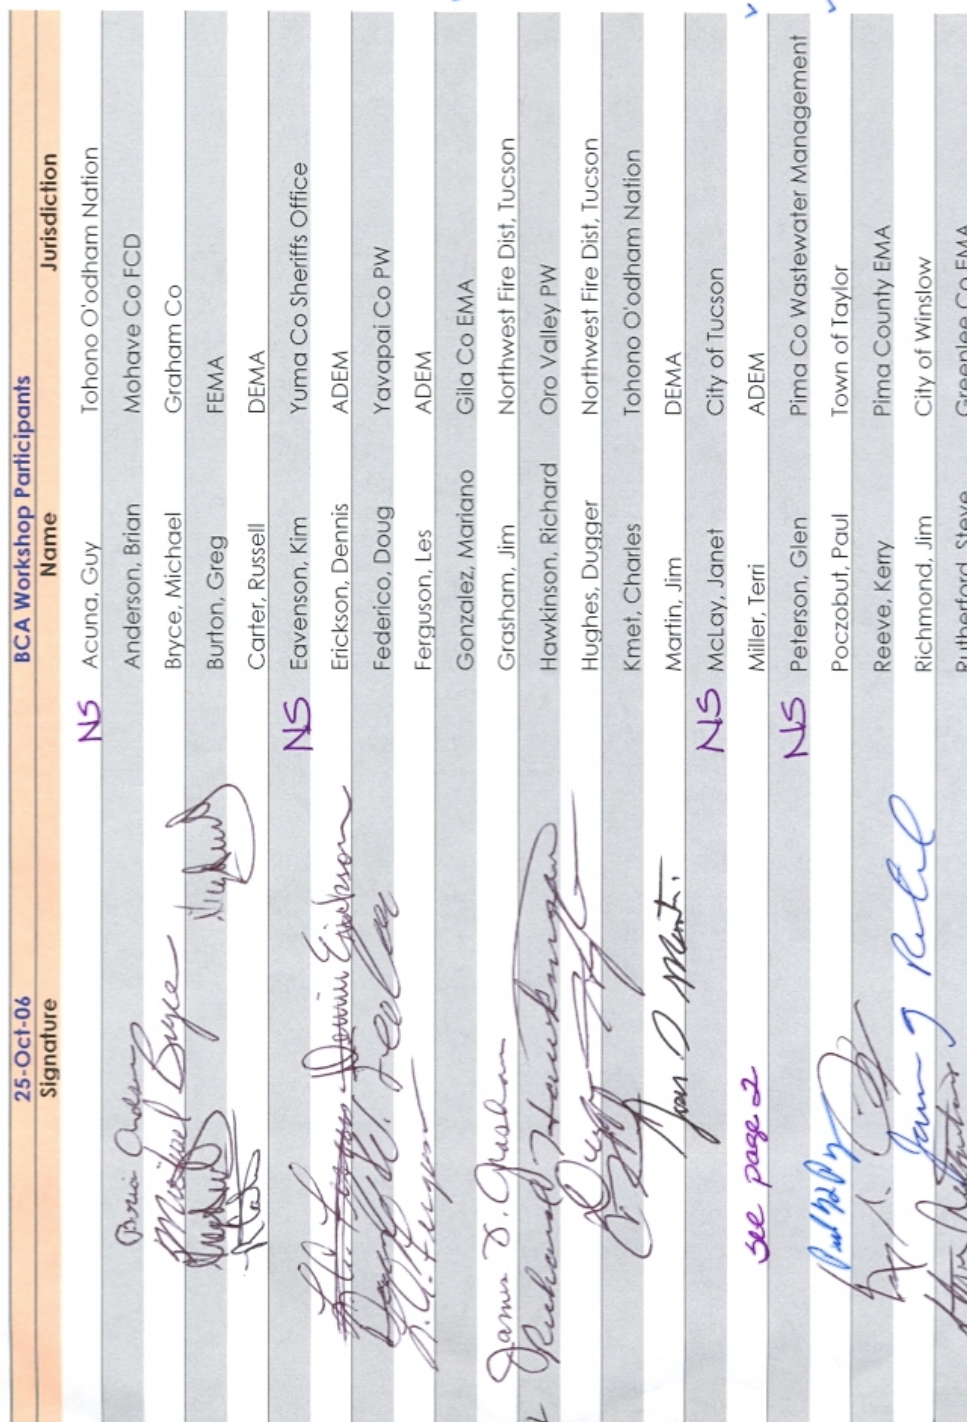 25-Oct-06 BCA Workshop Participants
Signature Name Jurisdiction
NS Acuna, Guy Tohono O'odham Nation
Brian Anderson Anderson, Brian Mohave Co FCD
Michael Bryce Bryce, Michael Graham Co
Burton, Greg FEMA
Carter, Russell DEMA
NS Eavenson, Kim Yuma Co Sheriffs Office
Dennis Erickson Erickson, Dennis ADEM
Federico, Doug Yavapai Co PW
Ferguson, Les ADEM
Gonzalez, Mariano Gila Co EMA
James D. Grasham Grasham, Jim Northwest Fire Dist, Tucson
Richard Hawkinson Hawkinson, Richard Oro Valley PW
Hughes, Dugger Northwest Fire Dist, Tucson
Kmet, Charles Tohono O'odham Nation
Martin, Jim DEMA
NS McLay, Janet City of Tucson
see page 2 Miller, Terri ADEM
NS Peterson, Glen Pima Co Wastewater Management
Poczobut, Paul Town of Taylor
Reeve, Kerry Pima County EMA
Richmond, Jim City of Winslow
Rutherford, Steve Greenlee Co EMA